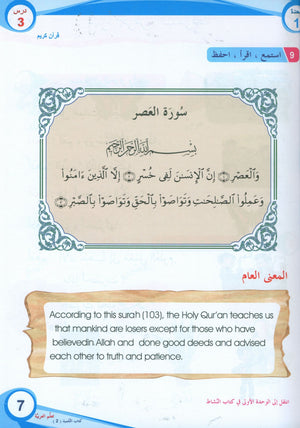 درس
3
قرآن كريم
9 استمع ، اقرأ ، احفظ
سُورَة العَصر
بِسْمِ اللَّهِ الرَّحْمَٰنِ الرَّحِيمِ
وَٱلْعَصْرِ ۝ إِنَّ ٱلْإِنسَٰنَ لَفِى خُسْرٍ ۝ إِلَّا ٱلَّذِينَ ءَامَنُوا۟
وَعَمِلُوا۟ ٱلصَّٰلِحَٰتِ وَتَوَاصَوْا۟ بِٱلْحَقِّ وَتَوَاصَوْا۟ بِٱلصَّبْرِ ۝
المعنى العام
According to this surah (103), the Holy Qur'an teaches us
that mankind are losers except for those who have
believedin Allah and done good deeds and advised
each other to truth and patience.
انتقل إلى الوحدة الأولى في كتاب النشاط
7
كتاب التلميذ ( 2 )